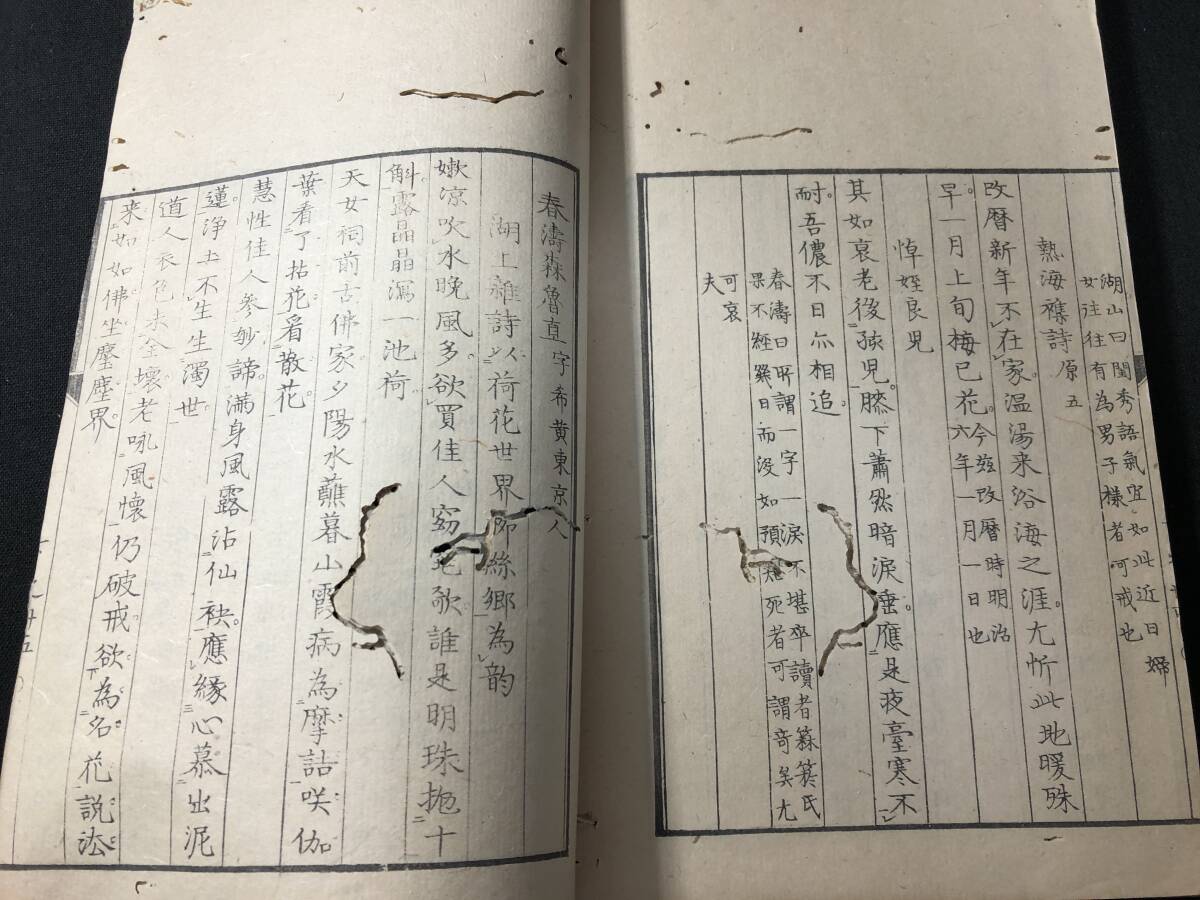 湖山曰閨秀語氣宜如此近日婦
女往往有為男子様者可戒也
熱海襍詩 原五
改暦新年不在家温湯来浴海之涯尤忻此地暖殊
早一月上旬梅已花 今玆改暦時明治六年一月一日也
悼姪良児
其如哀老後孩児膝下蕭然暗涙垂應是夜臺寒不
耐吾儂不日亦相追
春濤曰所謂一字一涙不堪卒讀者蘇箕氏
果不經幾日而沒如預死者可謂奇矣尤
可哀
夫
春濤森魯直 字希黄東京人
湖上雑詩以荷花世界鄉為韵
嫰凉吹水晚風多欲買佳人歌誰是明珠抛十
斛露晶晶瀉一池荷
天女祠前古佛家夕陽水蘸暮山霞病為摩詰咲伽
葉看了拈花看散花
慧性佳人參妙諦満身風露沾仙袂應緣心慕出泥
蓮浄土不生生濁世
道人衣色未全壞老吼風懷仍破戒欲為名花説法
来如如佛坐塵塵界